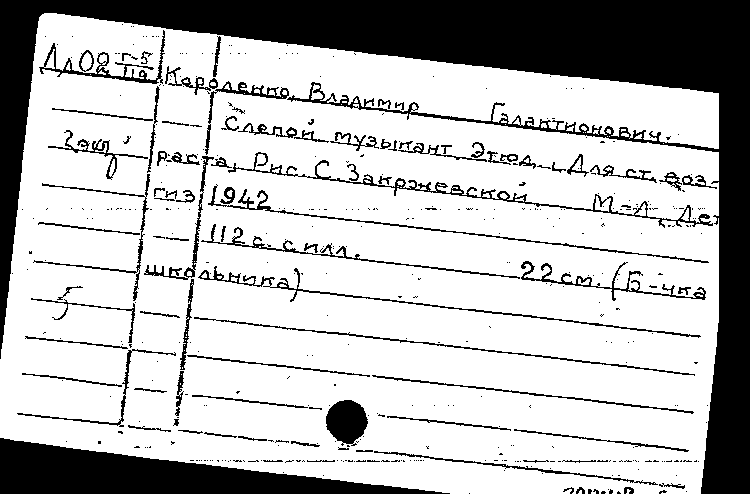 ДлОВ Г-5/119 Кароленко, Владимир Галактионович.
Слепой музыкант. Этюд. Для ст. воз-
2 экз раста, Рис. С. Закржевской. М-Л, Дет
гиз 1942
112 с. с илл. 22 см. (Б-чка
школьника)
5